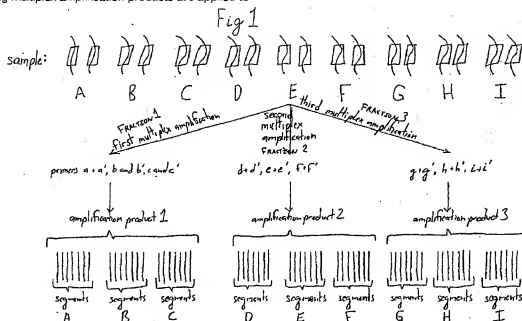 ng multiplex amplification products are applied to
Fig 1
sample:
A B C D E F G H I
FRACTION 1
first multiplex amplification
second
multiplex
amplification
FRACTION 2
FRACTION 3
third multiplex amplification
primers a + a', b and b', c and c'
d+d', e+e', f+f'
g+g', h+h', i+i'
amplification product 1
amplification product 2
amplification product 3
segments segments segments segments segments segments segments segments segments
A B C D E F G H I